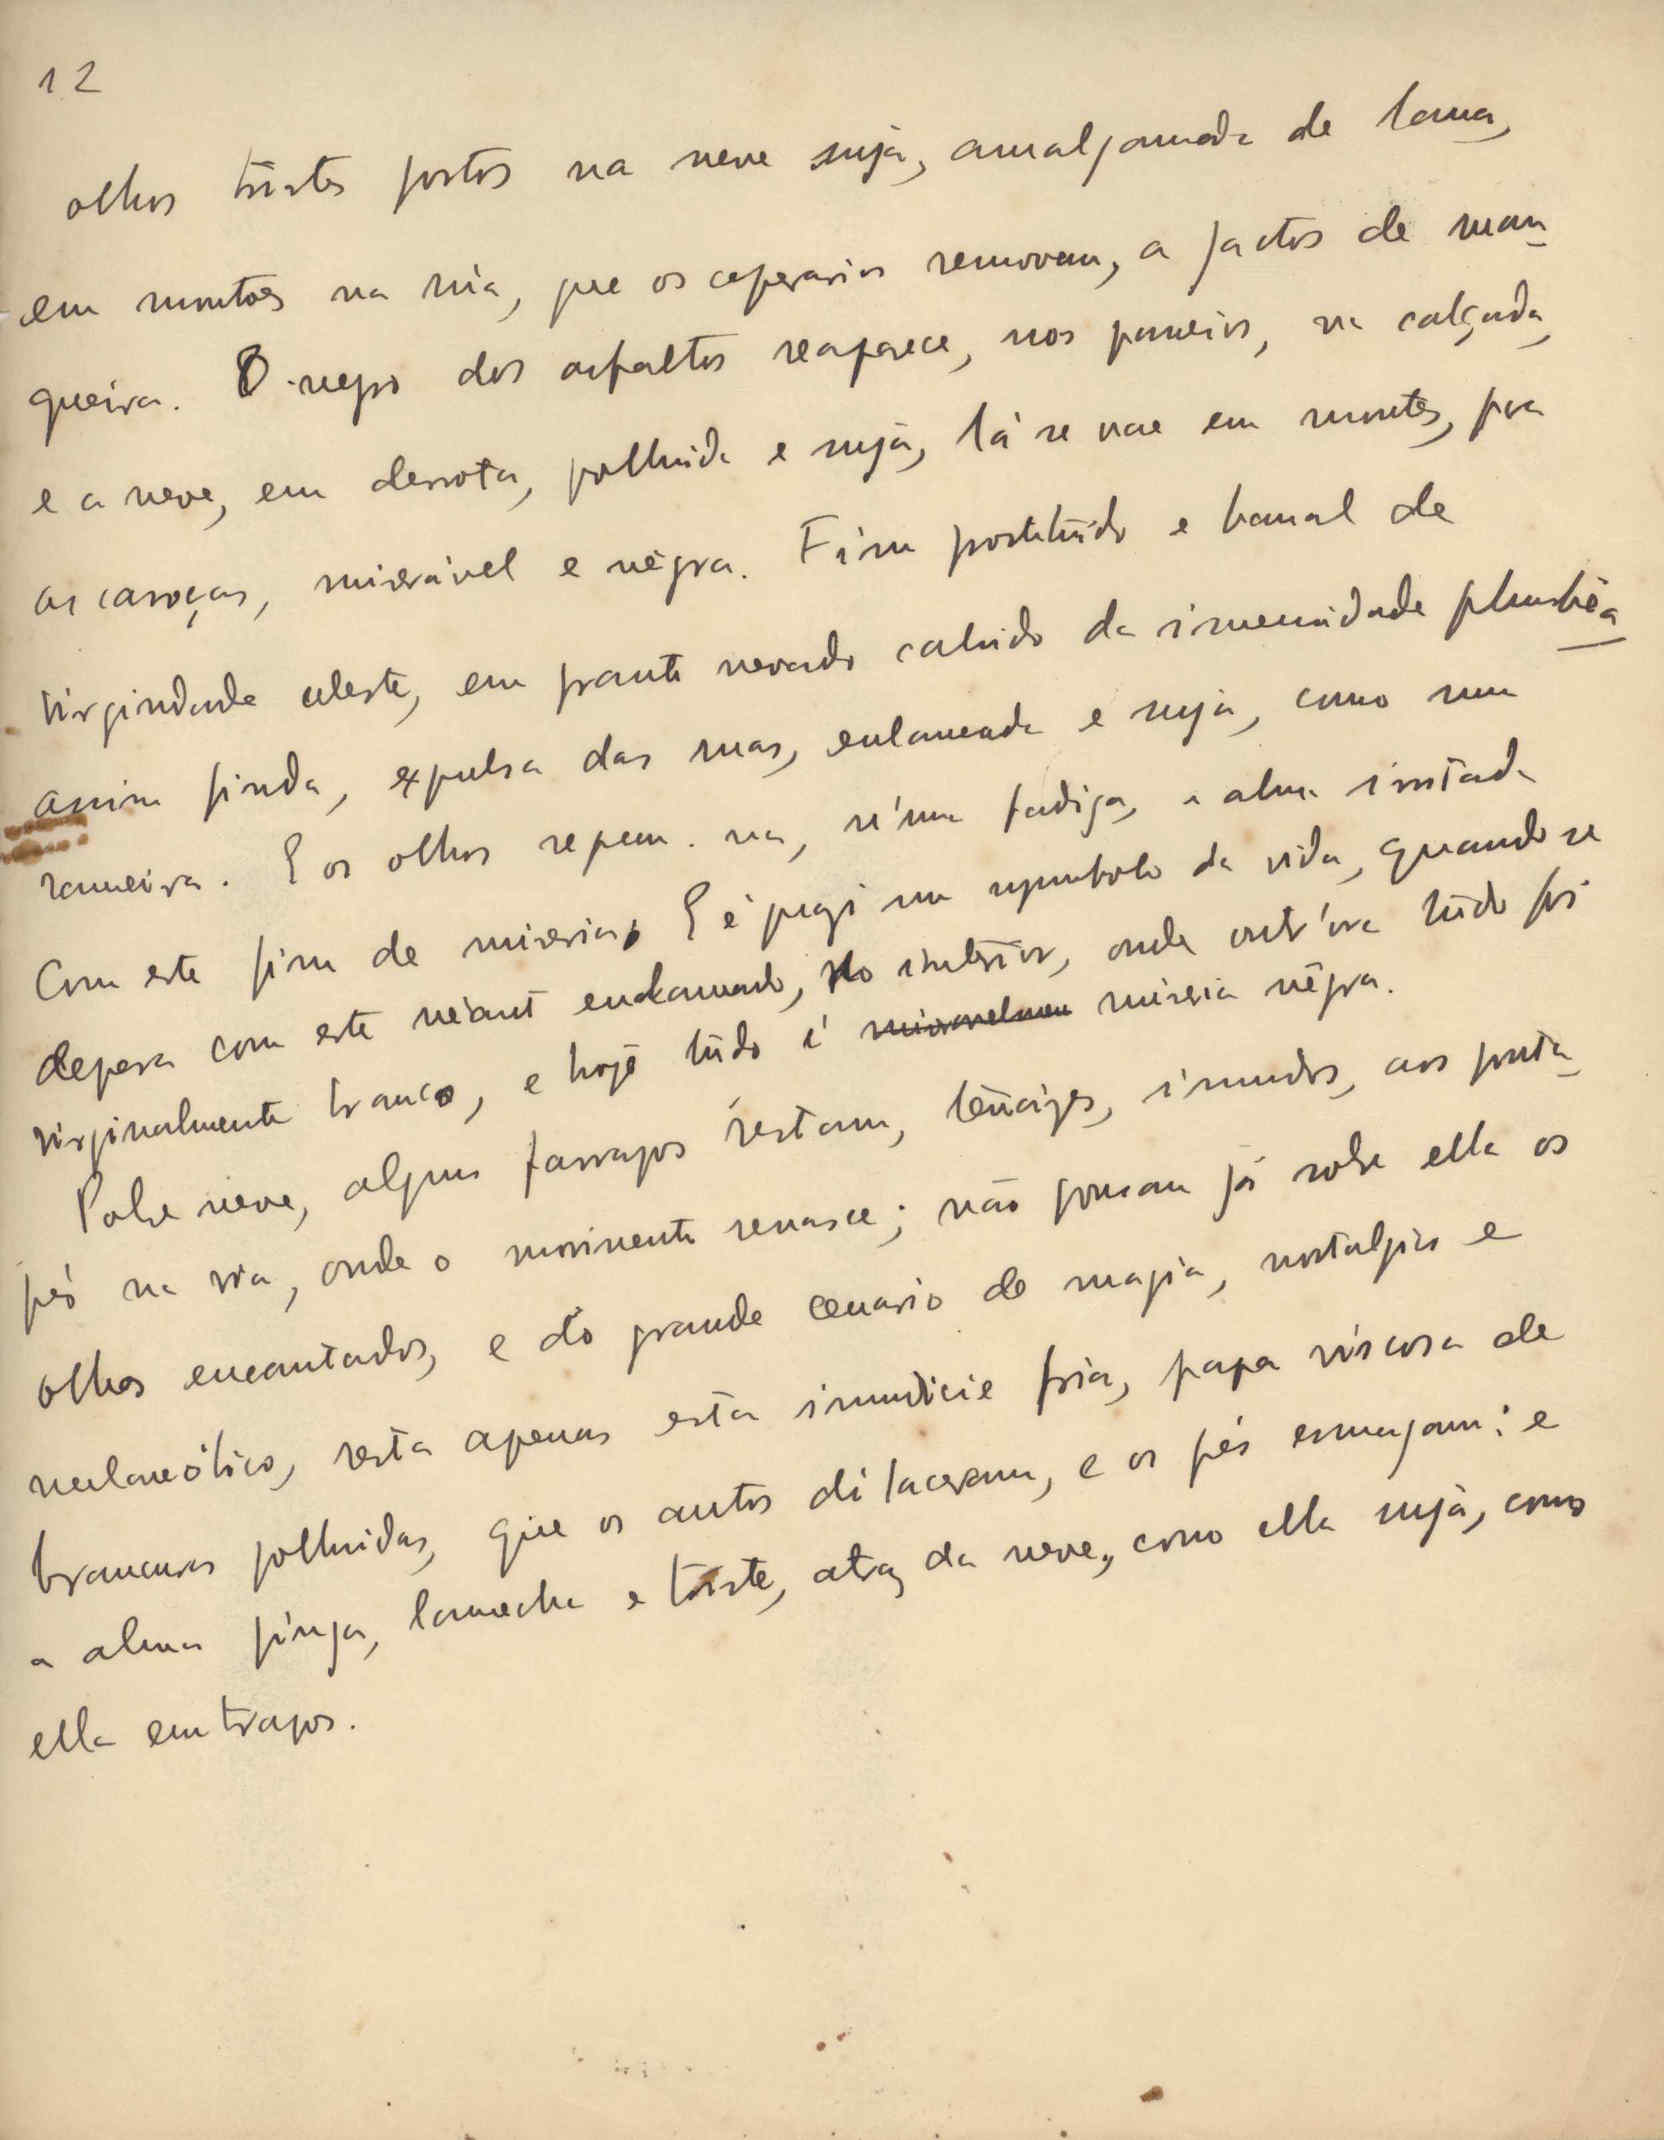 12
olhos tristes postos na neve suja, amalgamada de lama,
em montões na rua, que os operarios removem, a jactos de man
gueira. O negro dos asfaltos reaparece, nos passeios, na calçada,
e a neve, em derrota, polluida e suja, lá se vae em montes, pra
as carroças, miseravel e négra. Fim prostituido e banal de
virgindade celeste, em pranto nevado cahido da imensidade plumbêa
assim finda, expulsa das ruas, enlameada e suja, como uma
rameira. E os olhos seguem-na, n'uma fadiga, a alma irritada
com este fim de miseria, E é pra gi um symbolo da vida, quando se
depara com este néant enlameado, no interior, onde out'ora tudo foi
virginalmente branco, e hoje tudo é miseria négra.
Pobre neve, alguns farrapos restam, tenazes, imundos, aos ponta
pés na rua, onde o movimento renasce; não pousam já sobre ella os
olhos encantados, e do grande cenario de magia, nostalgico e
melancólico, resta apenas esta imundicie fria, papa viscosa de
brancuras polluidas, que os autos dilaceram, e os pés esmagam: e
a alma pinga, lamecha e triste, atraz da neve, como ella suja, como
ella em trapos.